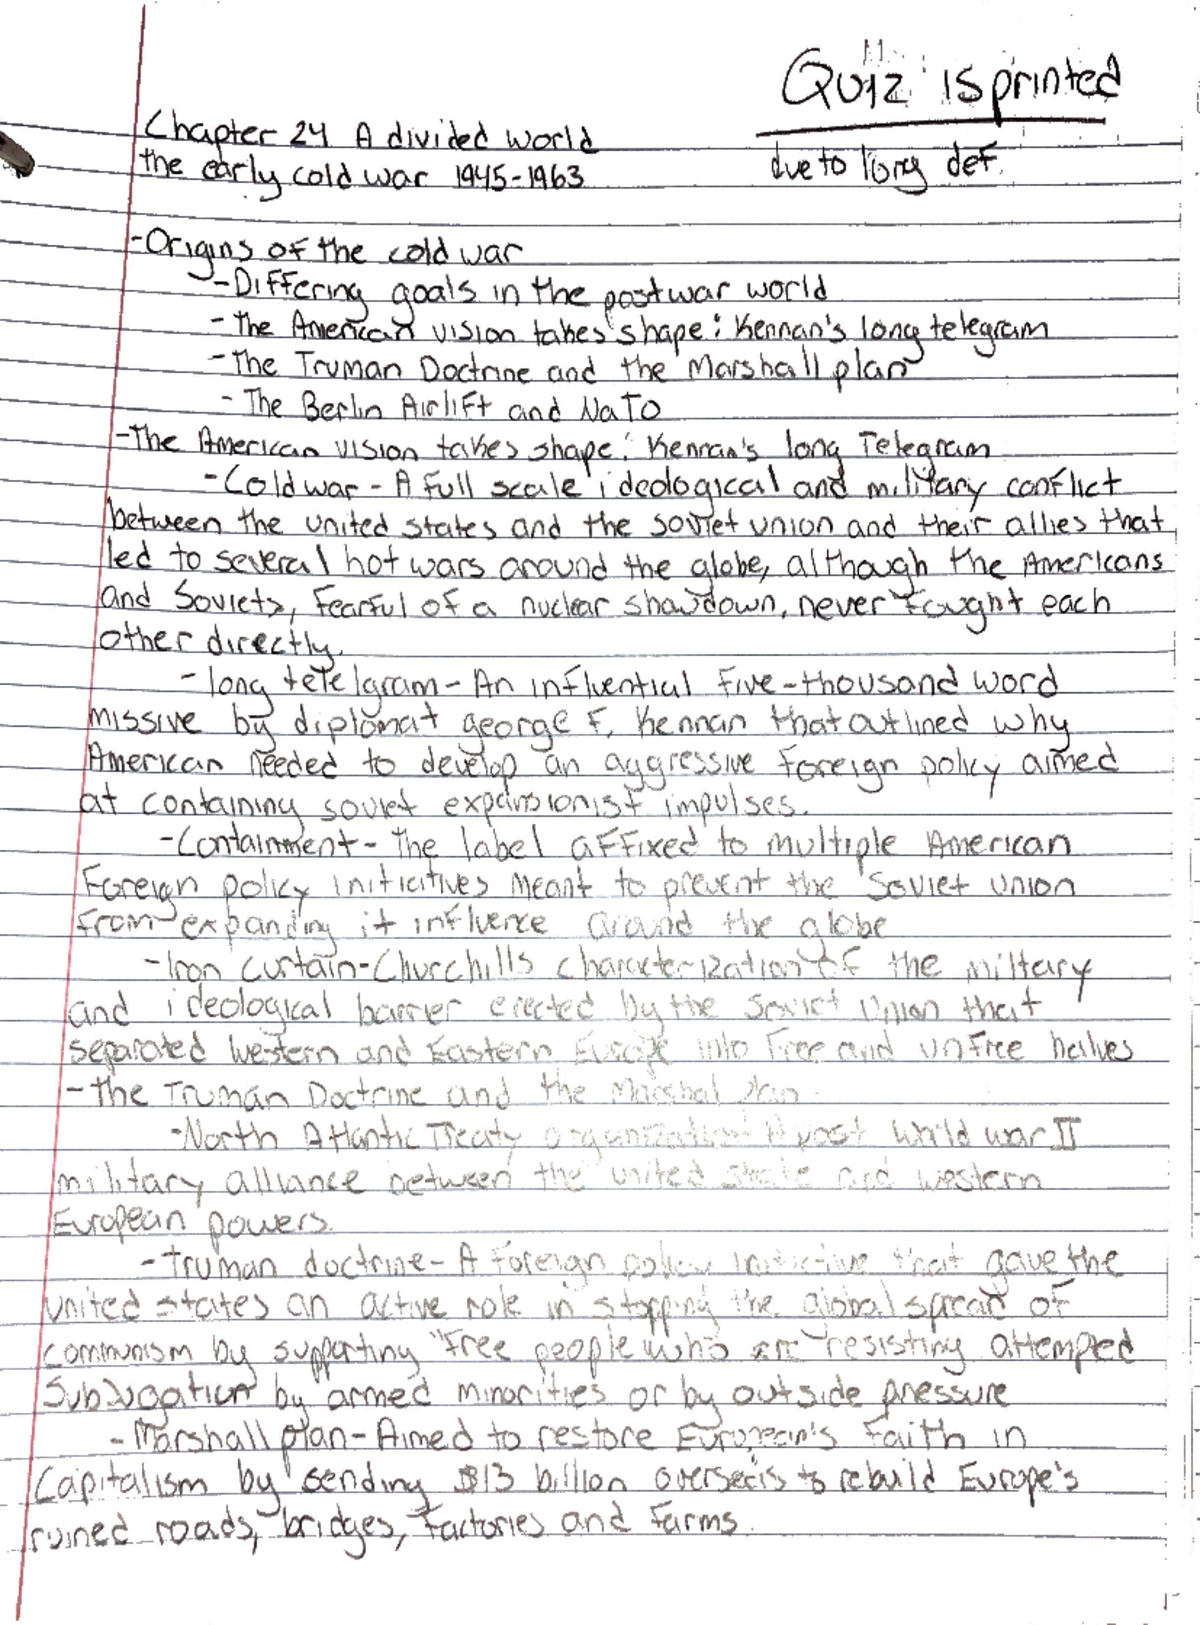 Quiz is printed
due to long def.
Chapter 24 A divided world
the early cold war 1945-1963
-Origins of the cold war
-Differing goals in the postwar world
-The American vision takes shape: Kennan's long telegram
-The Truman Doctrine and the Marshall plan
-The Berlin Airlift and NaTO
-The American vision takes shape: Kennan's long Telegram
-Cold war - A full scale ideological and military conflict
between the united states and the soviet union and their allies that
led to several hot wars around the globe, although the Americans
and Soviets, fearful of a nuclear showdown, never fought each
other directly.
-long telelgram- An influential five-thousand word
missive by diplomat george F. Kennan that outlined why
American needed to develop an aggressive foreign policy aimed
at containing soviet expansionist impulses.
-Containment- The label affixed to multiple American
Foreign policy initicitives meant to prevent the Soviet union
from expanding it influence around the globe
-Iron curtain-Churchills characterization of the miltary
and ideological barrier erected by the Soviet Union that
separated western and Eastern Europe into free and unfree halves
-The Truman Doctrine and the Marshal plan
-North Atlantic Treaty organization- A post World war II
military alliance between the united state and western
European powers.
-Truman doctrine- A foreign policy initictive that gave the
united states an active role in stopping the global spread of
communism by supporting "free people who are resisting attemped
subjugation by armed minorities or by outside pressure
-Marshall plan- Aimed to restore European's faith in
Capitalism by sending $13 billion overseas to rebuild Europe's
ruined roads, bridges, factories and farms.